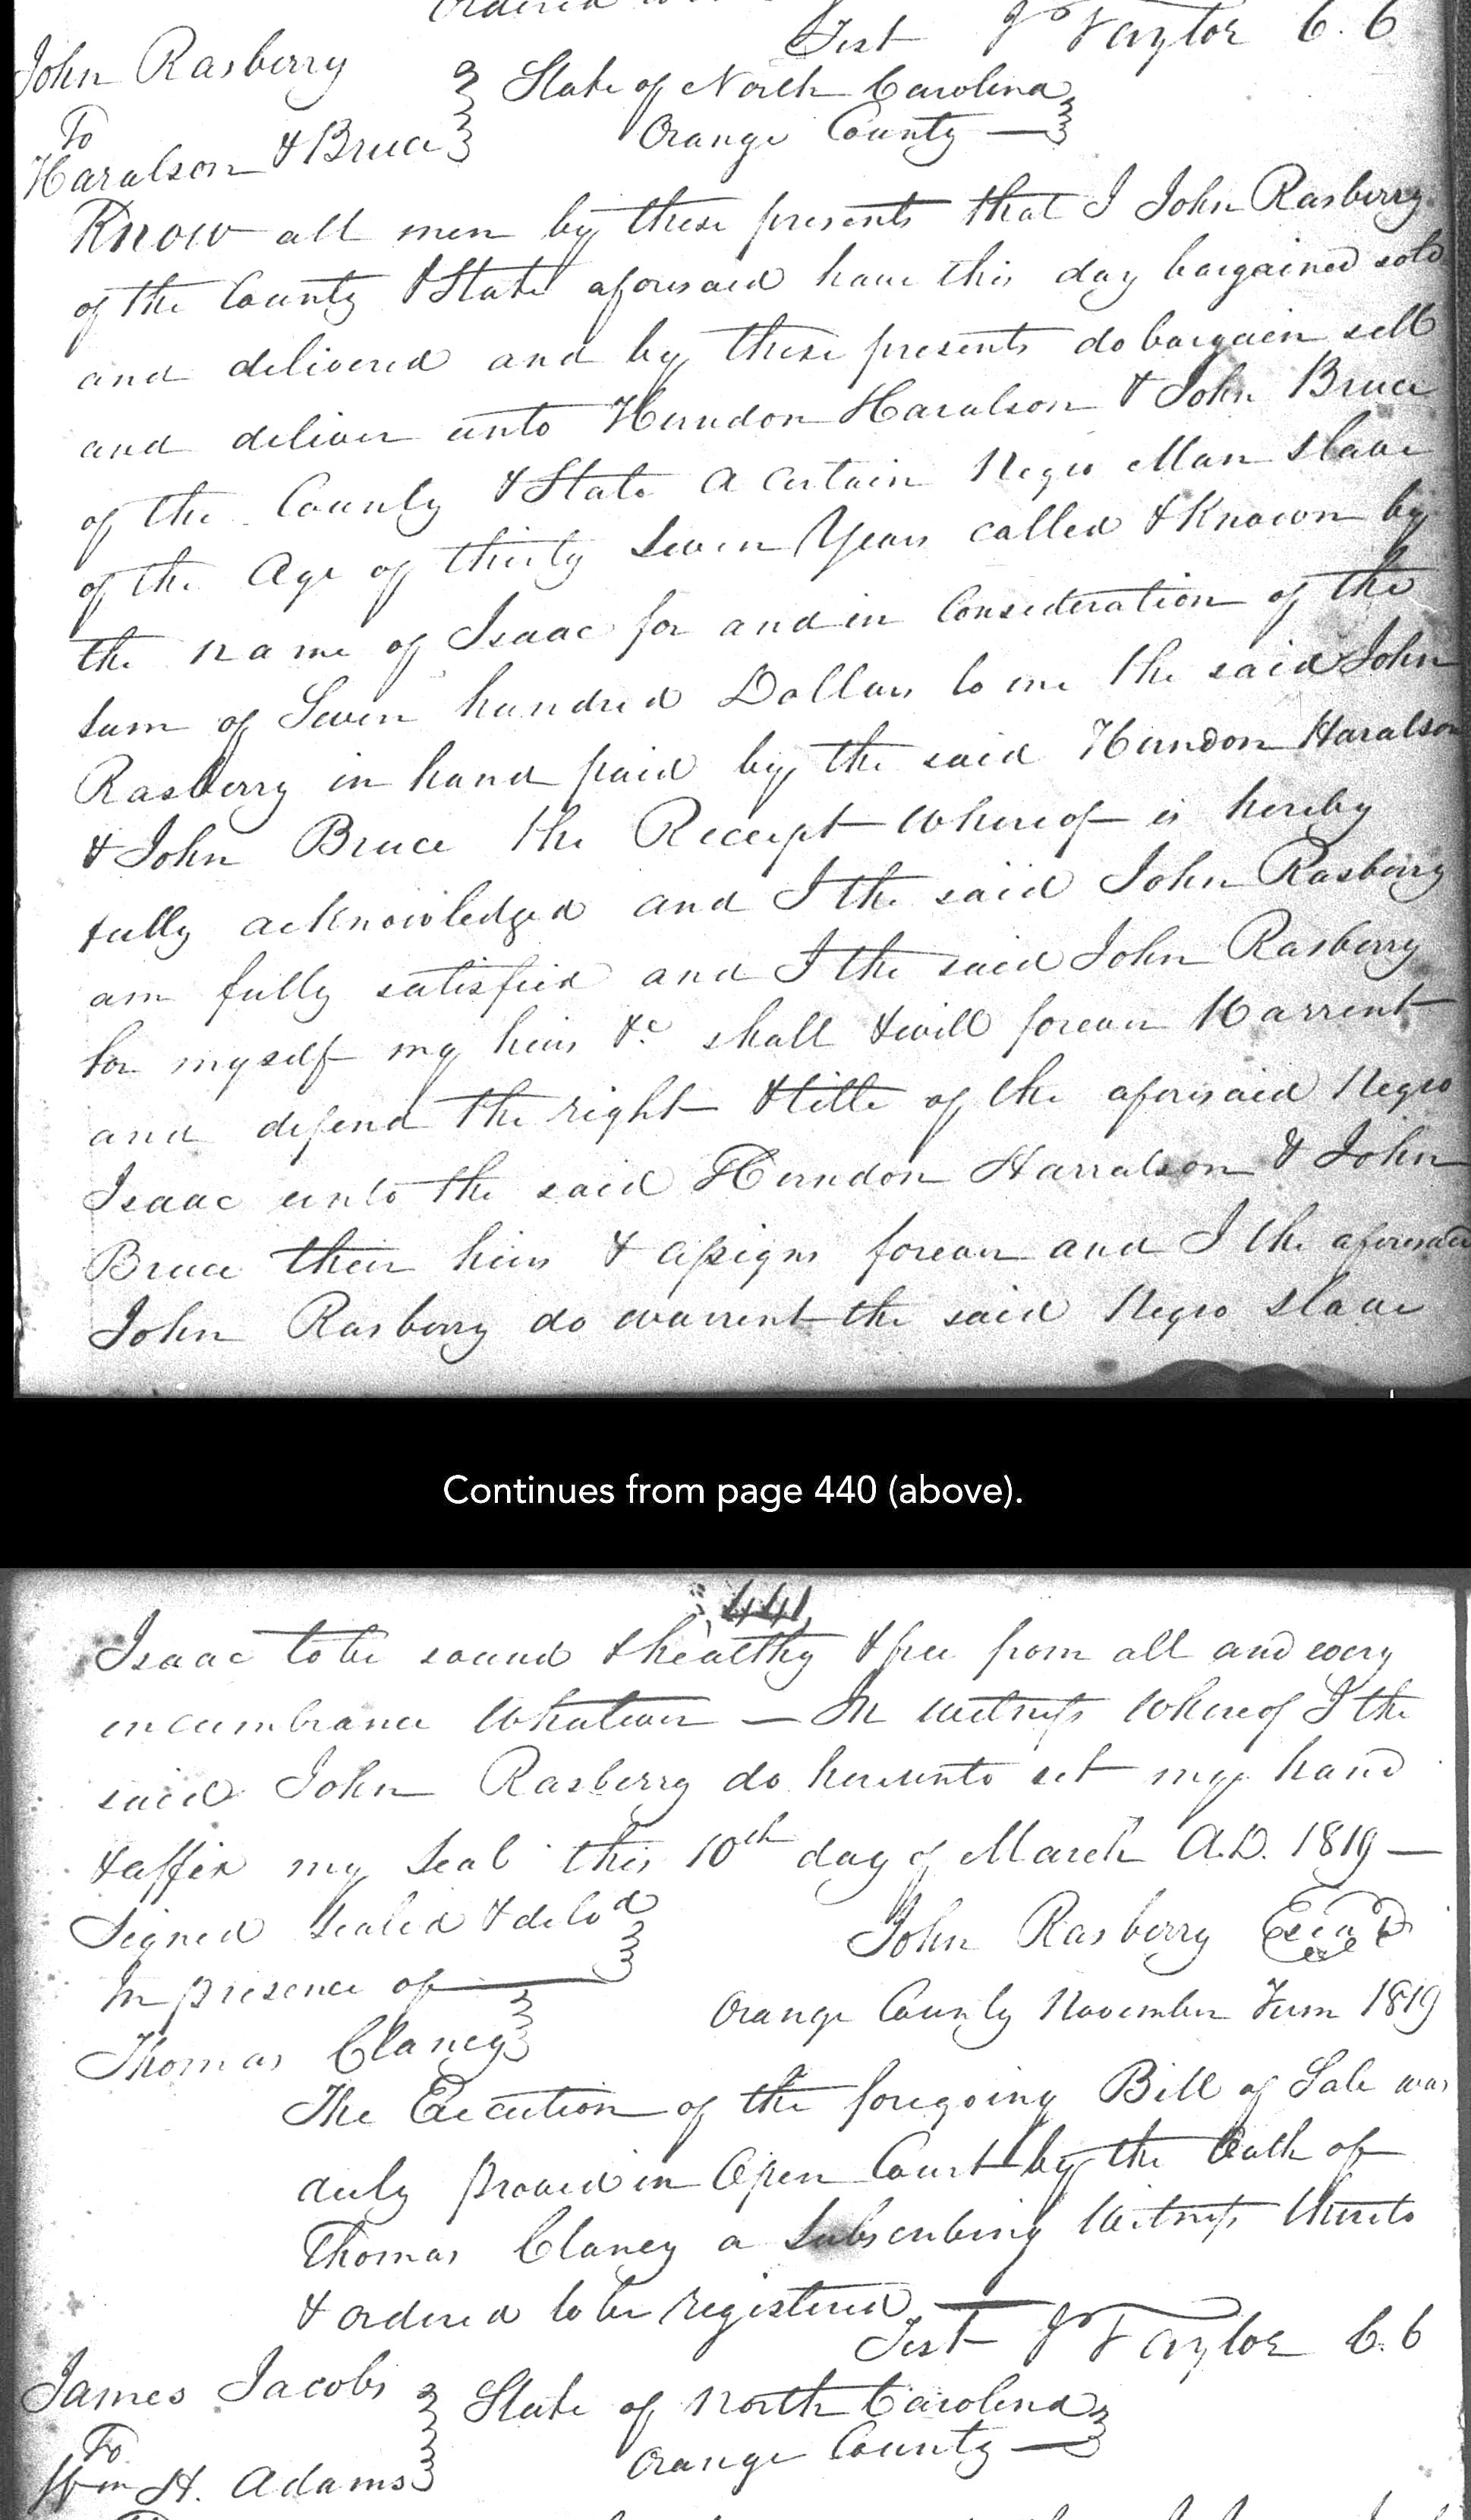 Ordered
Test J Taylor C.C
John Rasberry
To
Haralson & Bruce
State of North Carolina
Orange County —
Know all men by these presents that I John Rasberry
of the County & State aforesaid have this day bargained sold
and delivered and by these presents do bargain sell
and deliver unto Herndon Haralson & John Bruce
of the County & State a certain Negro Man Slave
of the Age of thirty Seven Years called & Known by
the name of Isaac for and in Consideration of the
Sum of Seven hundred Dollars to me the said John
Rasberry in hand paid by the said Herndon Haralson
& John Bruce the Receipt Whereof is hereby
fully acknowledged and I the said John Rasberry
am fully satisfied and I the said John Rasberry
for myself my heirs &c shall & will forever Warrent
and defend the right & title of the aforesaid Negro
Isaac unto the said Herndon Harralson & John
Bruce their heirs & assigns forever and I the aforesaid
John Rasberry do warrent the said Negro slave
Continues from page 440 (above).
441
Isaac to be sound & healthy & free from all and every
incumbrance Whatever — In witness Whereof I the
said John Rasberry do hereunto set my hand
& affix my Seal this 10th day of March A.D. 1819 —
Signed Sealed & deld
In presence of —
Thomas Clancy
John Rasberry Seal
Orange County November Term 1819
The Execution of the foregoing Bill of Sale was
duly proved in Open Court by the Oath of
Thomas Clancy a Subscribing Witness thereto
& ordered to be registered —
Test J Taylor C.C
James Jacobs
To
Wm H. Adams
State of North Carolina
Orange County —